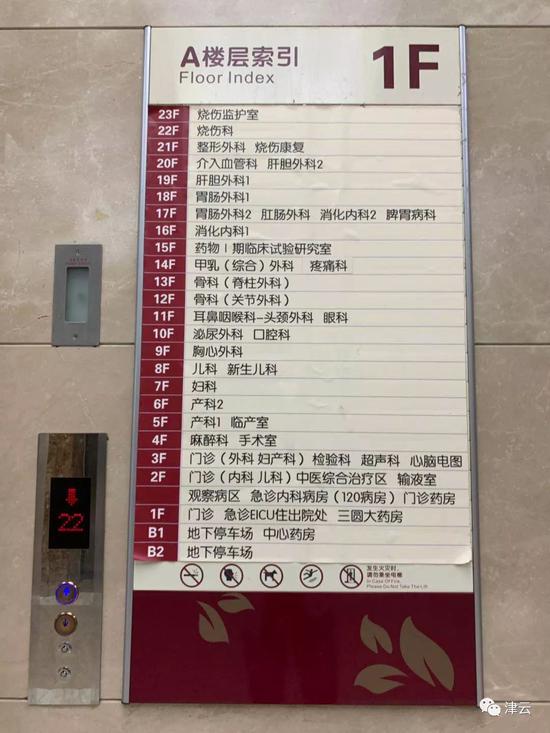 A楼层索引 1F
Floor Index
23F 烧伤监护室
22F 烧伤科
21F 整形外科 烧伤康复
20F 介入血管科 肝胆外科2
19F 肝胆外科1
18F 胃肠外科1
17F 胃肠外科2 肛肠外科 消化内科2 脾胃病科
16F 消化内科1
15F 药物Ⅰ期临床试验研究室
14F 甲乳（综合）外科 疼痛科
13F 骨科（脊柱外科）
12F 骨科（关节外科）
11F 耳鼻咽喉科-头颈外科 眼科
10F 泌尿外科 口腔科
9F 胸心外科
8F 儿科 新生儿科
7F 妇科
6F 产科2
5F 产科1 临产室
4F 麻醉科 手术室
3F 门诊（外科 妇产科）检验科 超声科 心脑电图
2F 门诊（内科 儿科）中医综合治疗区 输液室
观察病区 急诊内科病房（120病房）门诊药房
1F 门诊 急诊EICU住出院处 三圆大药房
B1 地下停车场 中心药房
B2 地下停车场
发生火灾时,
请勿乘坐电梯
In Case Of Fire,
Please Do Not Take The Lift
22
津云